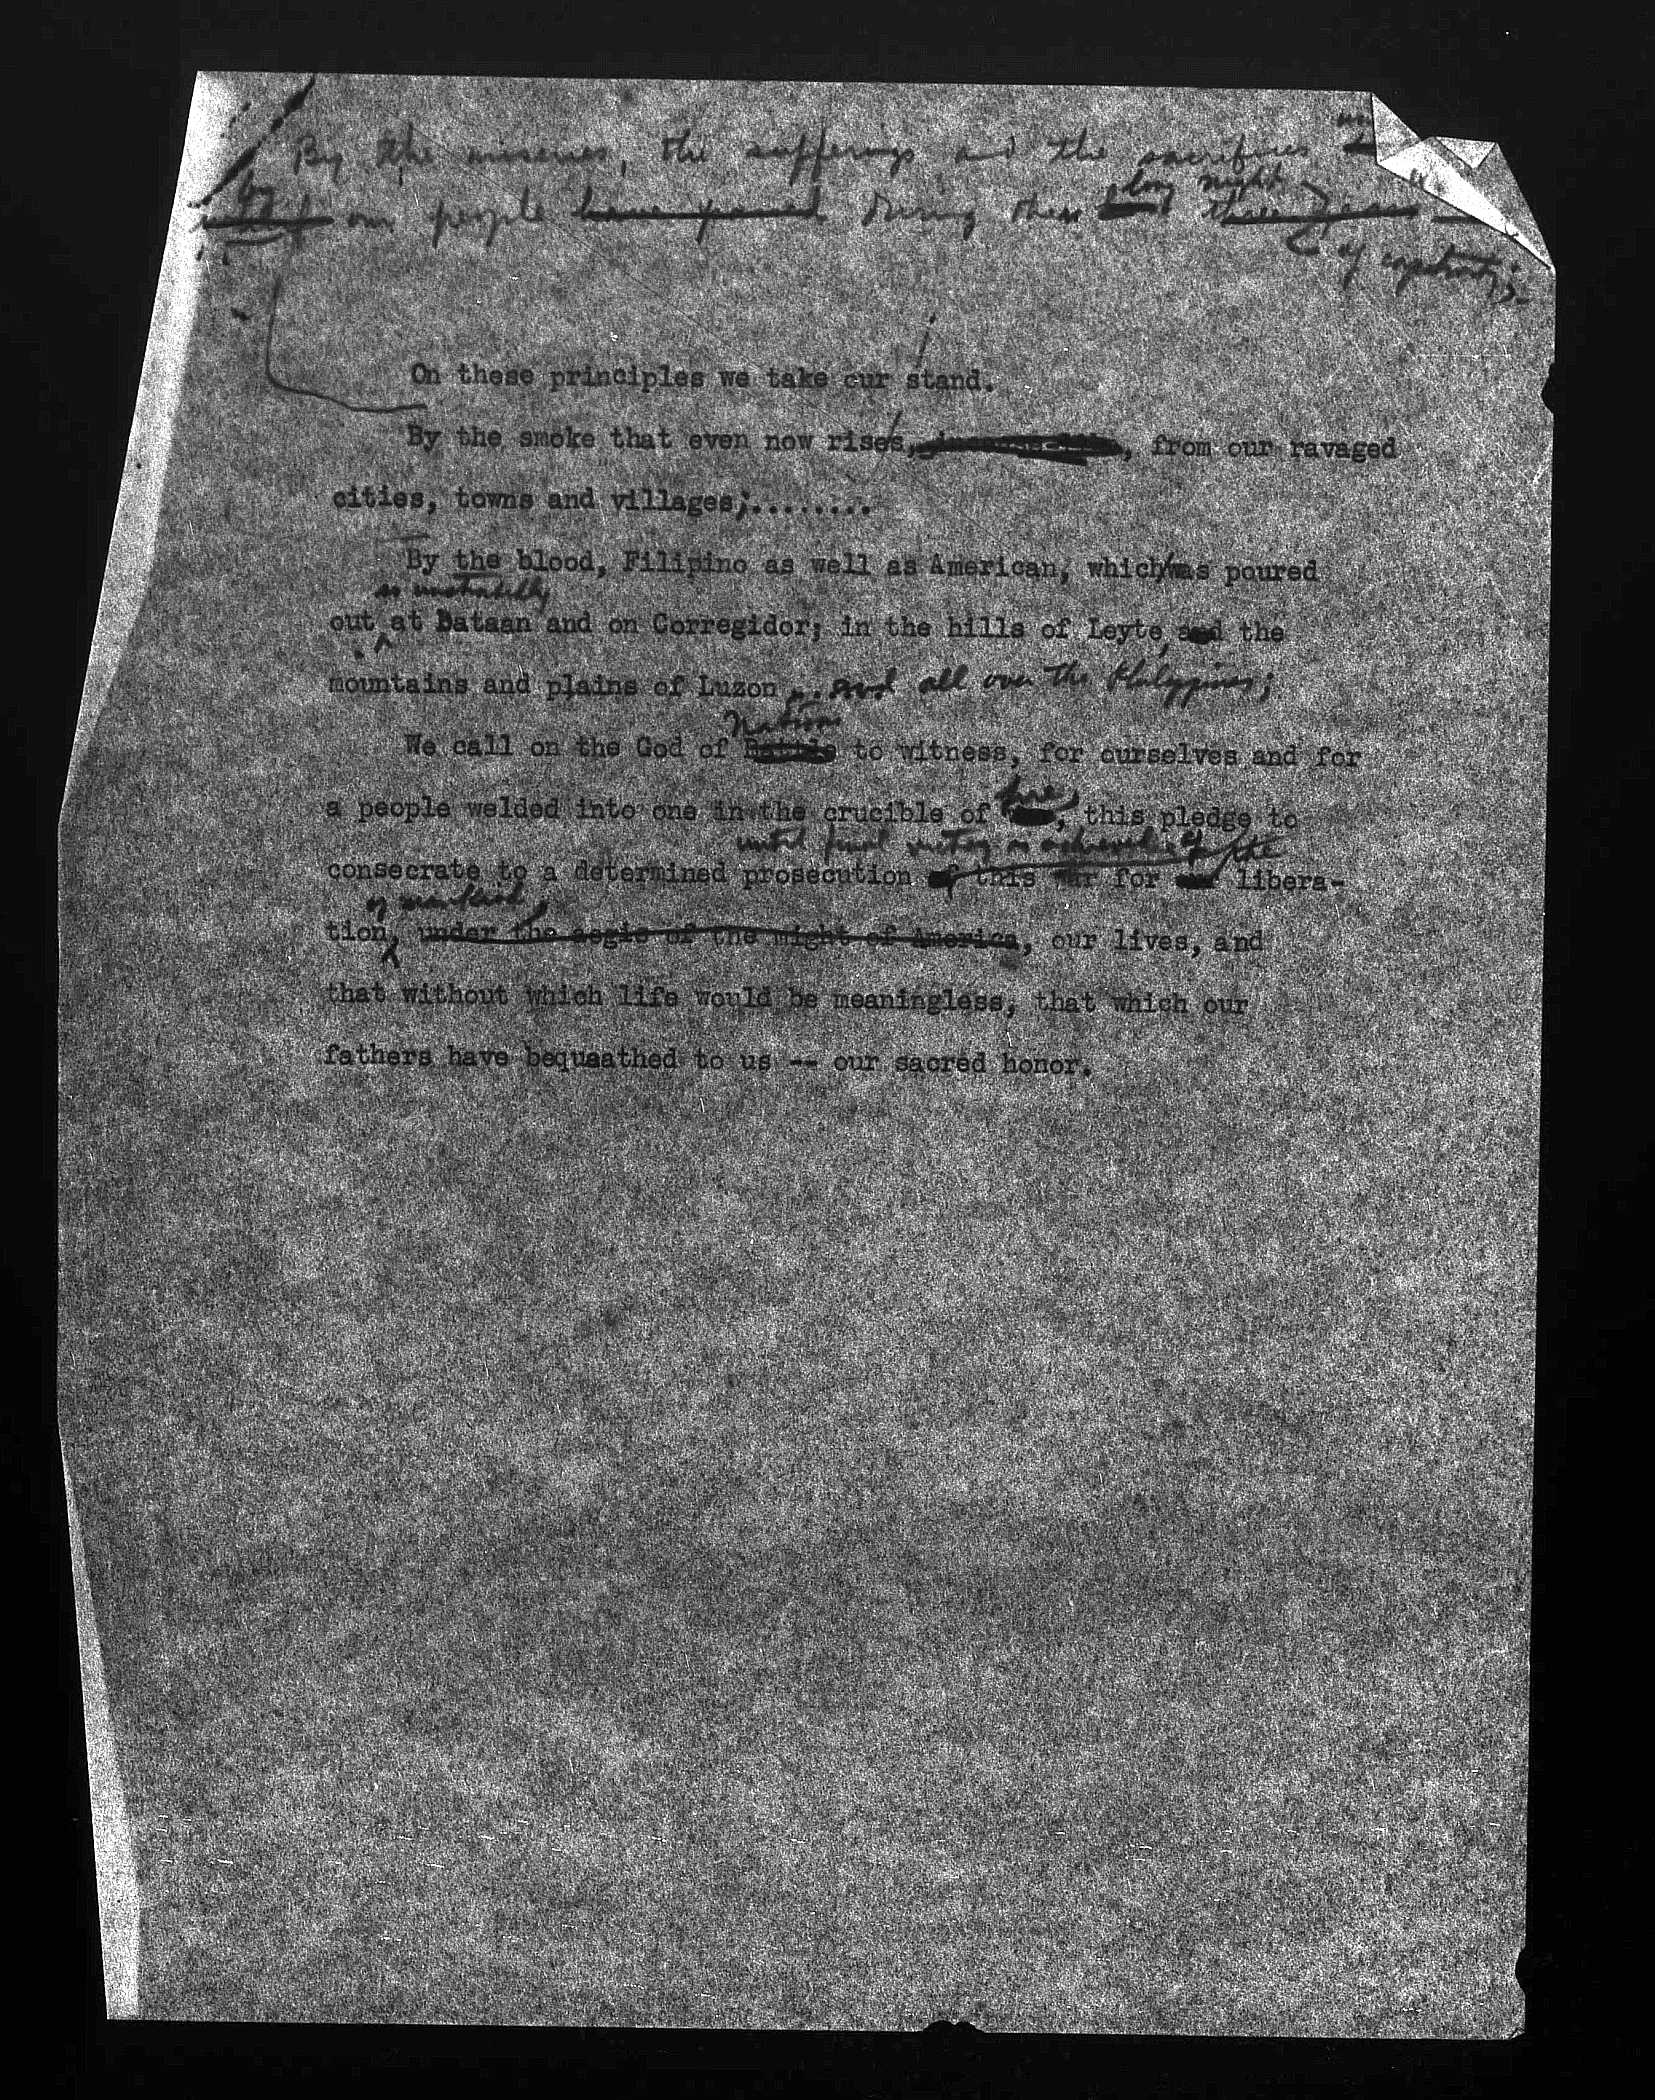 By the miseries, the sufferings and the sacrifices
by our people have passed during these long night three years
of captivity;
On these principles we take our stand.
By the smoke that even now rises, , from our ravaged
cities, towns and villages;........
By the blood, Filipino as well as American, which was poured
so unstintedly
out at Bataan and on Corregidor; in the hills of Leyte, and the
mountains and plains of Luzon and all over the Philippines;
Nations
We call on the God of Battle to witness, for ourselves and for
a people welded into one in the crucible of fire, this pledge to
until final victory is achieved, of the
consecrate to a determined prosecution of this war for our libera-
of mankind,
tion, under the aegis of the might of America, our lives, and
that without which life would be meaningless, that which our
fathers have bequeathed to us -- our sacred honor.